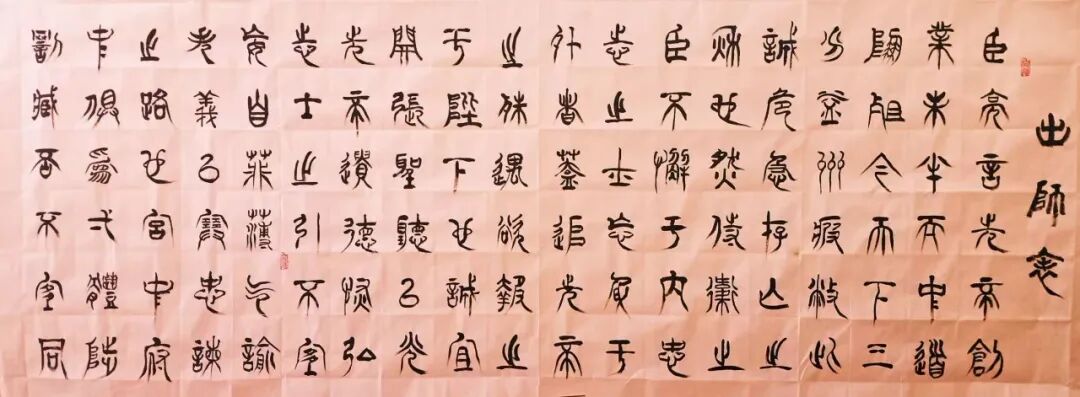 出師表
臣亮言先帝創
業未半而中道
崩殂今天下三
分益州疲敝此
誠危急存亡之
秋也然侍衛之
臣不懈于內忠
志之士忘身于
外者蓋追先帝
之殊遇欲報之
于陛下也誠宜
開張聖聽以光
先帝遺德恢弘
志士之引不宜
妄自菲薄气諭
失義以塞忠諫
之路也宮中府
中俱為弌體陟
罰臧否不宜同